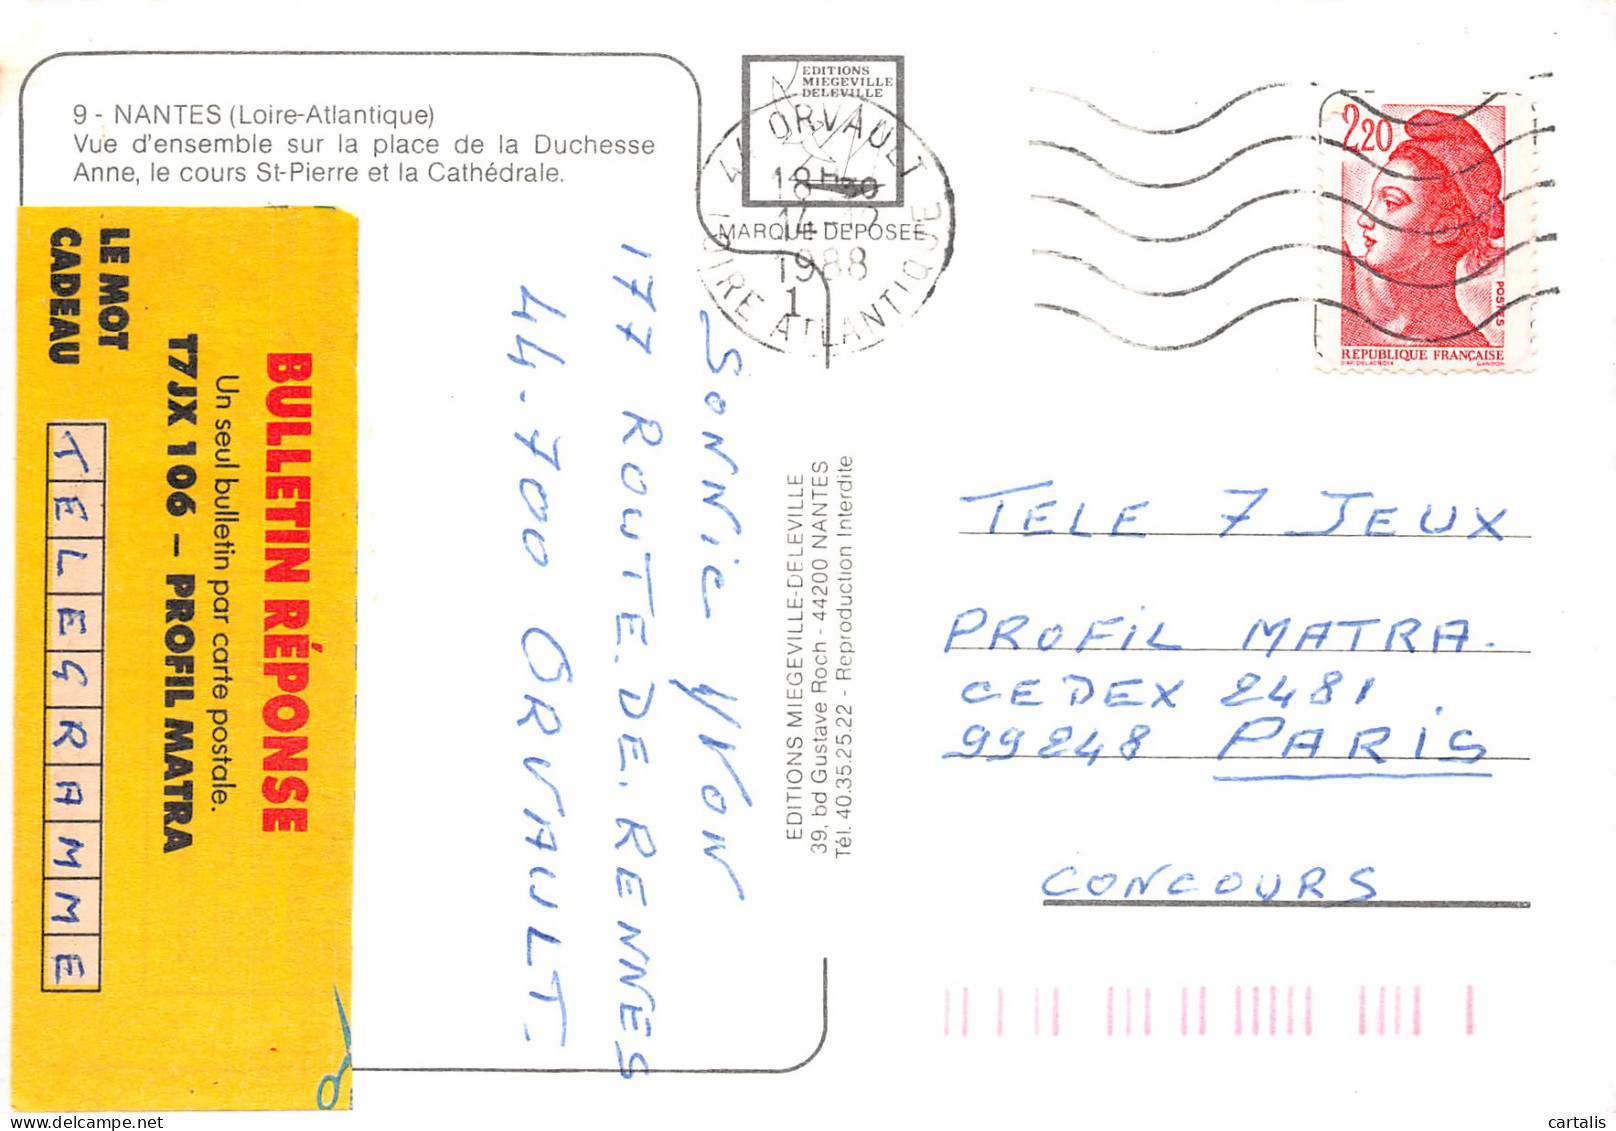 9 - NANTES (Loire-Atlantique)
Vue d'ensemble sur la place de la Duchesse
Anne, le cours St-Pierre et la Cathédrale.
EDITIONS
MIEGEVILLE
DELEVILLE
MARQUE DEPOSEE
44 ORVAULT
18H30
14-12
1988
1
LOIRE ATLANTIQUE
2,20
POSTES
REPUBLIQUE FRANÇAISE
D'AP. DELACROIX GANDON
BULLETIN RÉPONSE
Un seul bulletin par carte postale.
T7JX 106 – PROFIL MATRA
LE MOT
CADEAU
TELEGRAMME
SONNIC YVON
177 ROUTE.DE.RENNES
44.700 ORVAULT.
EDITIONS MIEGEVILLE-DELEVILLE
39, bd Gustave Roch - 44200 NANTES
Tél. 40.35.25.22 - Reproduction Interdite
TELE 7 JEUX
PROFIL MATRA.
CEDEX 2481.
99248 PARIS
CONCOURS
cartalis
delcampe.net